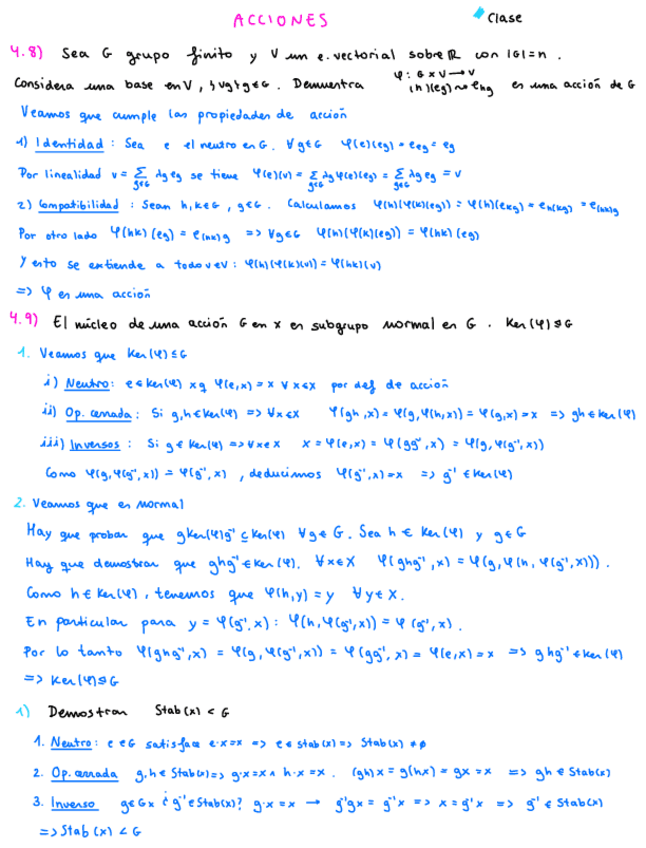 ACCIONES
Clase
4.8) Sea G grupo finito y V un e.vectorial sobre ℝ con |G|=n .
Considera una base en V, {vg}g∈G. Demuestra φ: G x V → V
(h)(eg) ⇝ ehg es una acción de G
Veamos que cumple las propiedades de acción
1) Identidad : Sea e el neutro en G. ∀g∈G φ(e)(eg) = eeg = eg
Por linealidad v = Σ g∈G λg eg se tiene φ(e)(v) = Σ g∈G λg φ(e)(eg) = Σ g∈G λg eg = v
2) Compatibilidad : Sean h,k∈G , g∈G. Calculamos φ(h)(φ(k)(eg)) = φ(h)(ekg) = eh(kg) = e(hk)g
Por otro lado φ(hk)(eg) = e(hk)g => ∀g∈G φ(h)(φ(k)(eg)) = φ(hk)(eg)
Y esto se extiende a todo v∈V : φ(h)(φ(k)(v)) = φ(hk)(v)
=> φ es una acción
4.9) El núcleo de una acción G en x es subgrupo normal en G . Ker(φ)⊴G
1. Veamos que Ker(φ)≤G
i) Neutro: e∈Ker(φ) xq φ(e,x) = x ∀x∈X por def de acción
ii) Op. cerrada : Si g,h∈Ker(φ) => ∀x∈X φ(gh,x) = φ(g,φ(h,x)) = φ(g,x) = x => gh∈Ker(φ)
iii) Inversos : Si g∈Ker(φ) => ∀x∈X x = φ(e,x) = φ(gg⁻¹,x) = φ(g,φ(g⁻¹,x))
Como φ(g,φ(g⁻¹,x)) = φ(g⁻¹,x) , deducimos φ(g⁻¹,x) = x => g⁻¹∈Ker(φ)
2. Veamos que es normal
Hay que probar que gKer(φ)g⁻¹⊆Ker(φ) ∀g∈G. Sea h∈Ker(φ) y g∈G
Hay que demostrar que ghg⁻¹∈Ker(φ). ∀x∈X φ(ghg⁻¹,x) = φ(g,φ(h,φ(g⁻¹,x))) .
Como h∈Ker(φ), tenemos que φ(h,y) = y ∀y∈X.
En particular para y = φ(g⁻¹,x) : φ(h,φ(g⁻¹,x)) = φ(g⁻¹,x) .
Por lo tanto φ(ghg⁻¹,x) = φ(g,φ(g⁻¹,x)) = φ(gg⁻¹,x) = φ(e,x) = x => ghg⁻¹∈Ker(φ)
=> Ker(φ)⊴G
1) Demostrar Stab(x) < G
1. Neutro: e∈G satisface e·x=x => e∈Stab(x) => Stab(x) ≠ ∅
2. Op. cerrada g,h∈Stab(x) => g·x=x ∧ h·x=x. (gh)x = g(hx) = gx = x => gh∈Stab(x)
3. Inverso g∈Gx ¿g⁻¹∈Stab(x)? g·x=x → g⁻¹gx = g⁻¹x => x = g⁻¹x => g⁻¹∈Stab(x)
=> Stab(x) < G